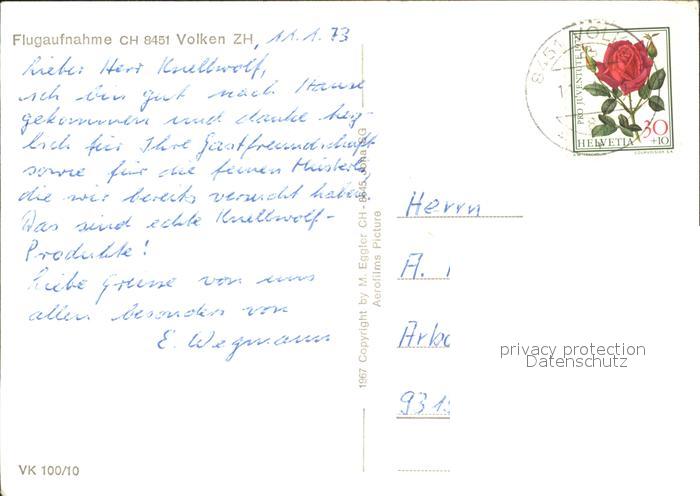 Flugaufnahme CH 8451 Volken ZH, 11.1.73
Lieber Herr Knellwolf,
ich bin gut nach Hause
gekommen und danke herz-
lich für Ihre Gastfreundschaft
sowie für die feinen Müsterli,
die wir bereits versucht haben.
Das sind echte Knellwolf-
Produkte!
Liebe Grüsse von uns
allen besonders von
E. Wegmann
VK 100/10
1967 Copyright by M. Eggler CH-8645 Jona SG
Aerofilms Picture
8451 VOLK
PRO JUVENTUTE 1972
30
+10
HELVETIA
COURVOISIER S.A.
Herrn
A.
Arbo
931
privacy protection
Datenschutz